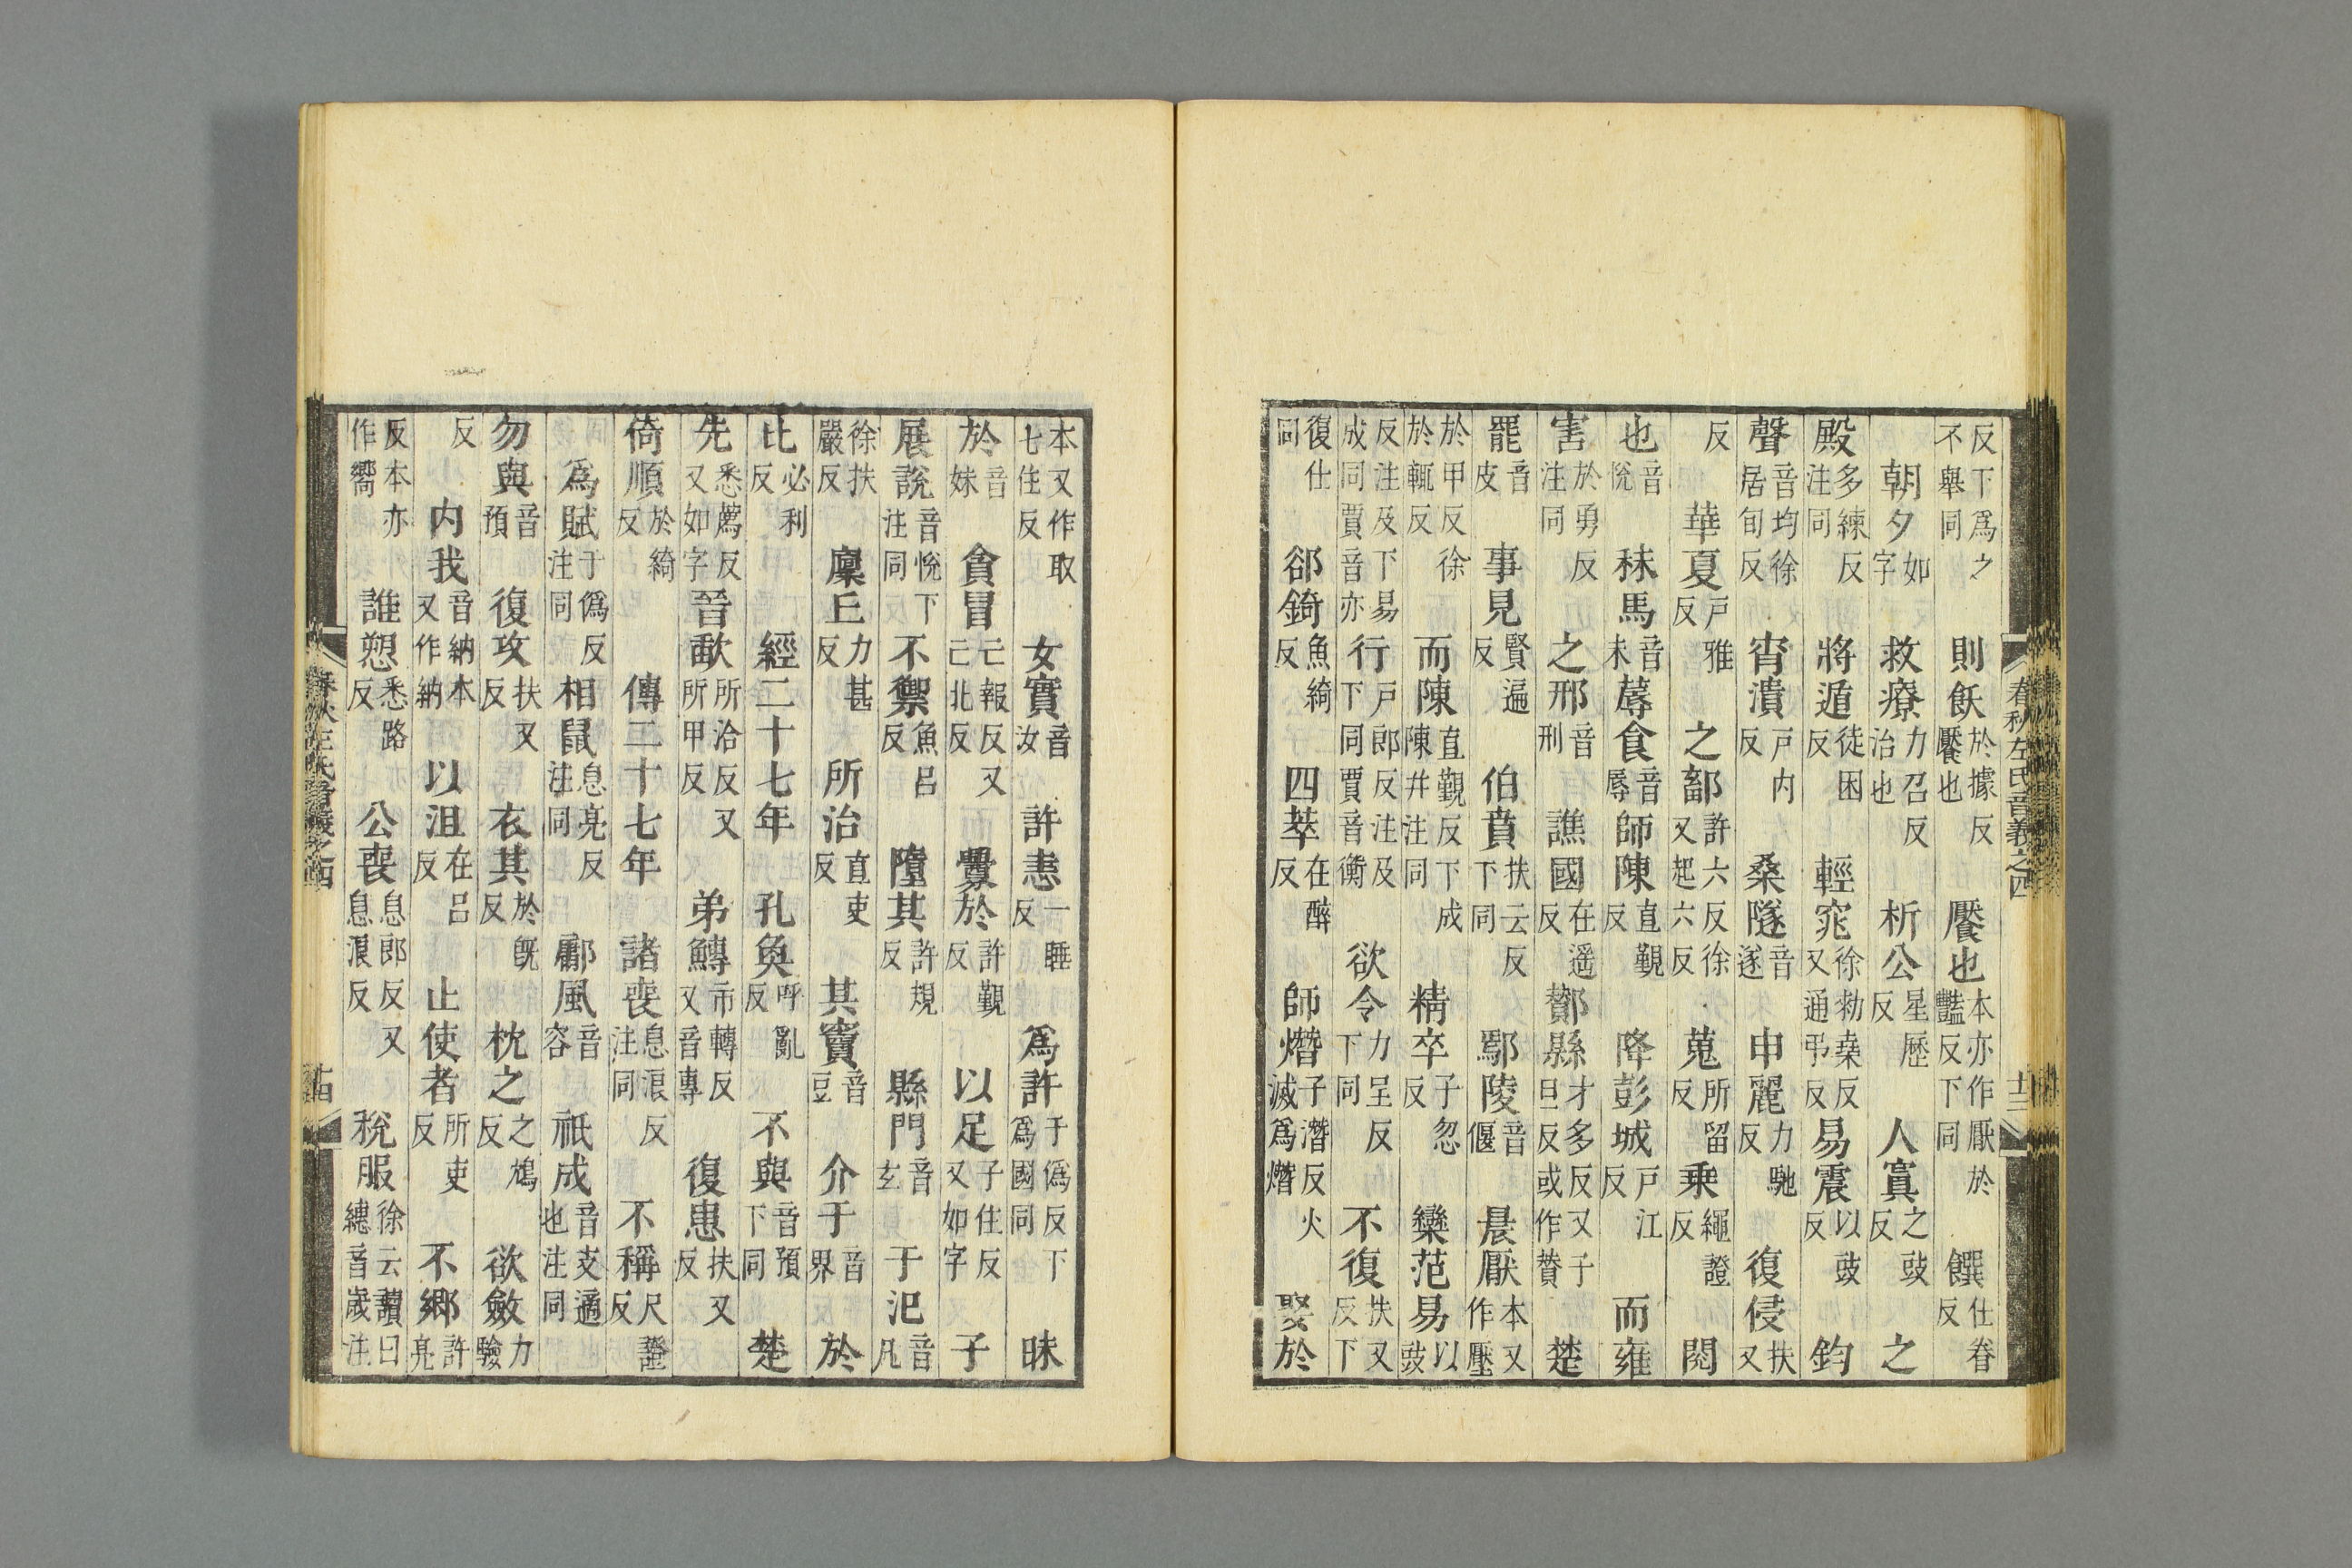 反下爲之不舉同　則飫於據反饜也　饜也本亦作厭於豔反下同　饌仕眷反
朝夕如字　救療力召反治也　析公星歷反　人寘之豉反　之
殿多練反注同　將遁徒困反　輕窕徐勑堯反又通弔反　易震以豉反　鈞
聲音均徐居旬反　宵潰戸内反　桑隧音遂　申麗力馳反　復侵扶又
反　華夏戸雅反　之鄐許六反徐又起六反　蒐所留反　乗繩證反　閱
也音悅　秣馬音末　蓐食音辱　師陳直覲反　降彭城戸江反　而雍
害於勇反注同　之邢音刑　譙國在遥反　酇縣才多反又子旦反或作贊　楚
罷音皮　事見賢遍反　伯賁扶云反下同　鄢陵音偃　晨厭本又作壓
於甲反徐於輒反　而陳直覲反下成陳井注同　精卒子忽反　欒范易以豉
反注及下易成同賈音亦　行戸郎反注及下同賈音衡　欲令力呈反下同　不復扶又反下
復仕同　郤錡魚綺反　四萃在醉反　師熸子潛反火滅爲熸　娶於
春秋左氏音義之四　十三
本又作取七住反　女實音汝　許恚一睡反　爲許于僞反下爲國同　昧
於音妹　貪冒亡報反又亡北反　釁於許覲反　以足子住反又如字　子
展說音悅下注同　不禦魚呂反　隳其許規反　縣門音玄　于汜音凡
徐扶嚴反　廩丘力甚反　所治直吏反　其竇音豆　介于音界　於
比必利反　經二十七年　孔奐呼亂反　不與音預下同　楚
先悉薦反又如字　晉歃所洽反又所甲反　弟鱄市轉反又音專　復患扶又反
倚順於綺反　傳二十七年　諸喪息浪反注同　不稱尺證反
爲賦于僞反注同　相鼠息亮反注同　鄘風音容　祇成音支適也注同
勿與音預　復攻扶又反　衣其於旣反　枕之之鴆反　欲斂力驗
反　内我音納本又作納　以沮在呂反　止使者所吏反　不鄉許亮
反本亦作嚮　誰愬悉路反　公喪息郎反又息浪反　稅服徐云讀曰繐音歲注
春秋左氏音義之四　十四